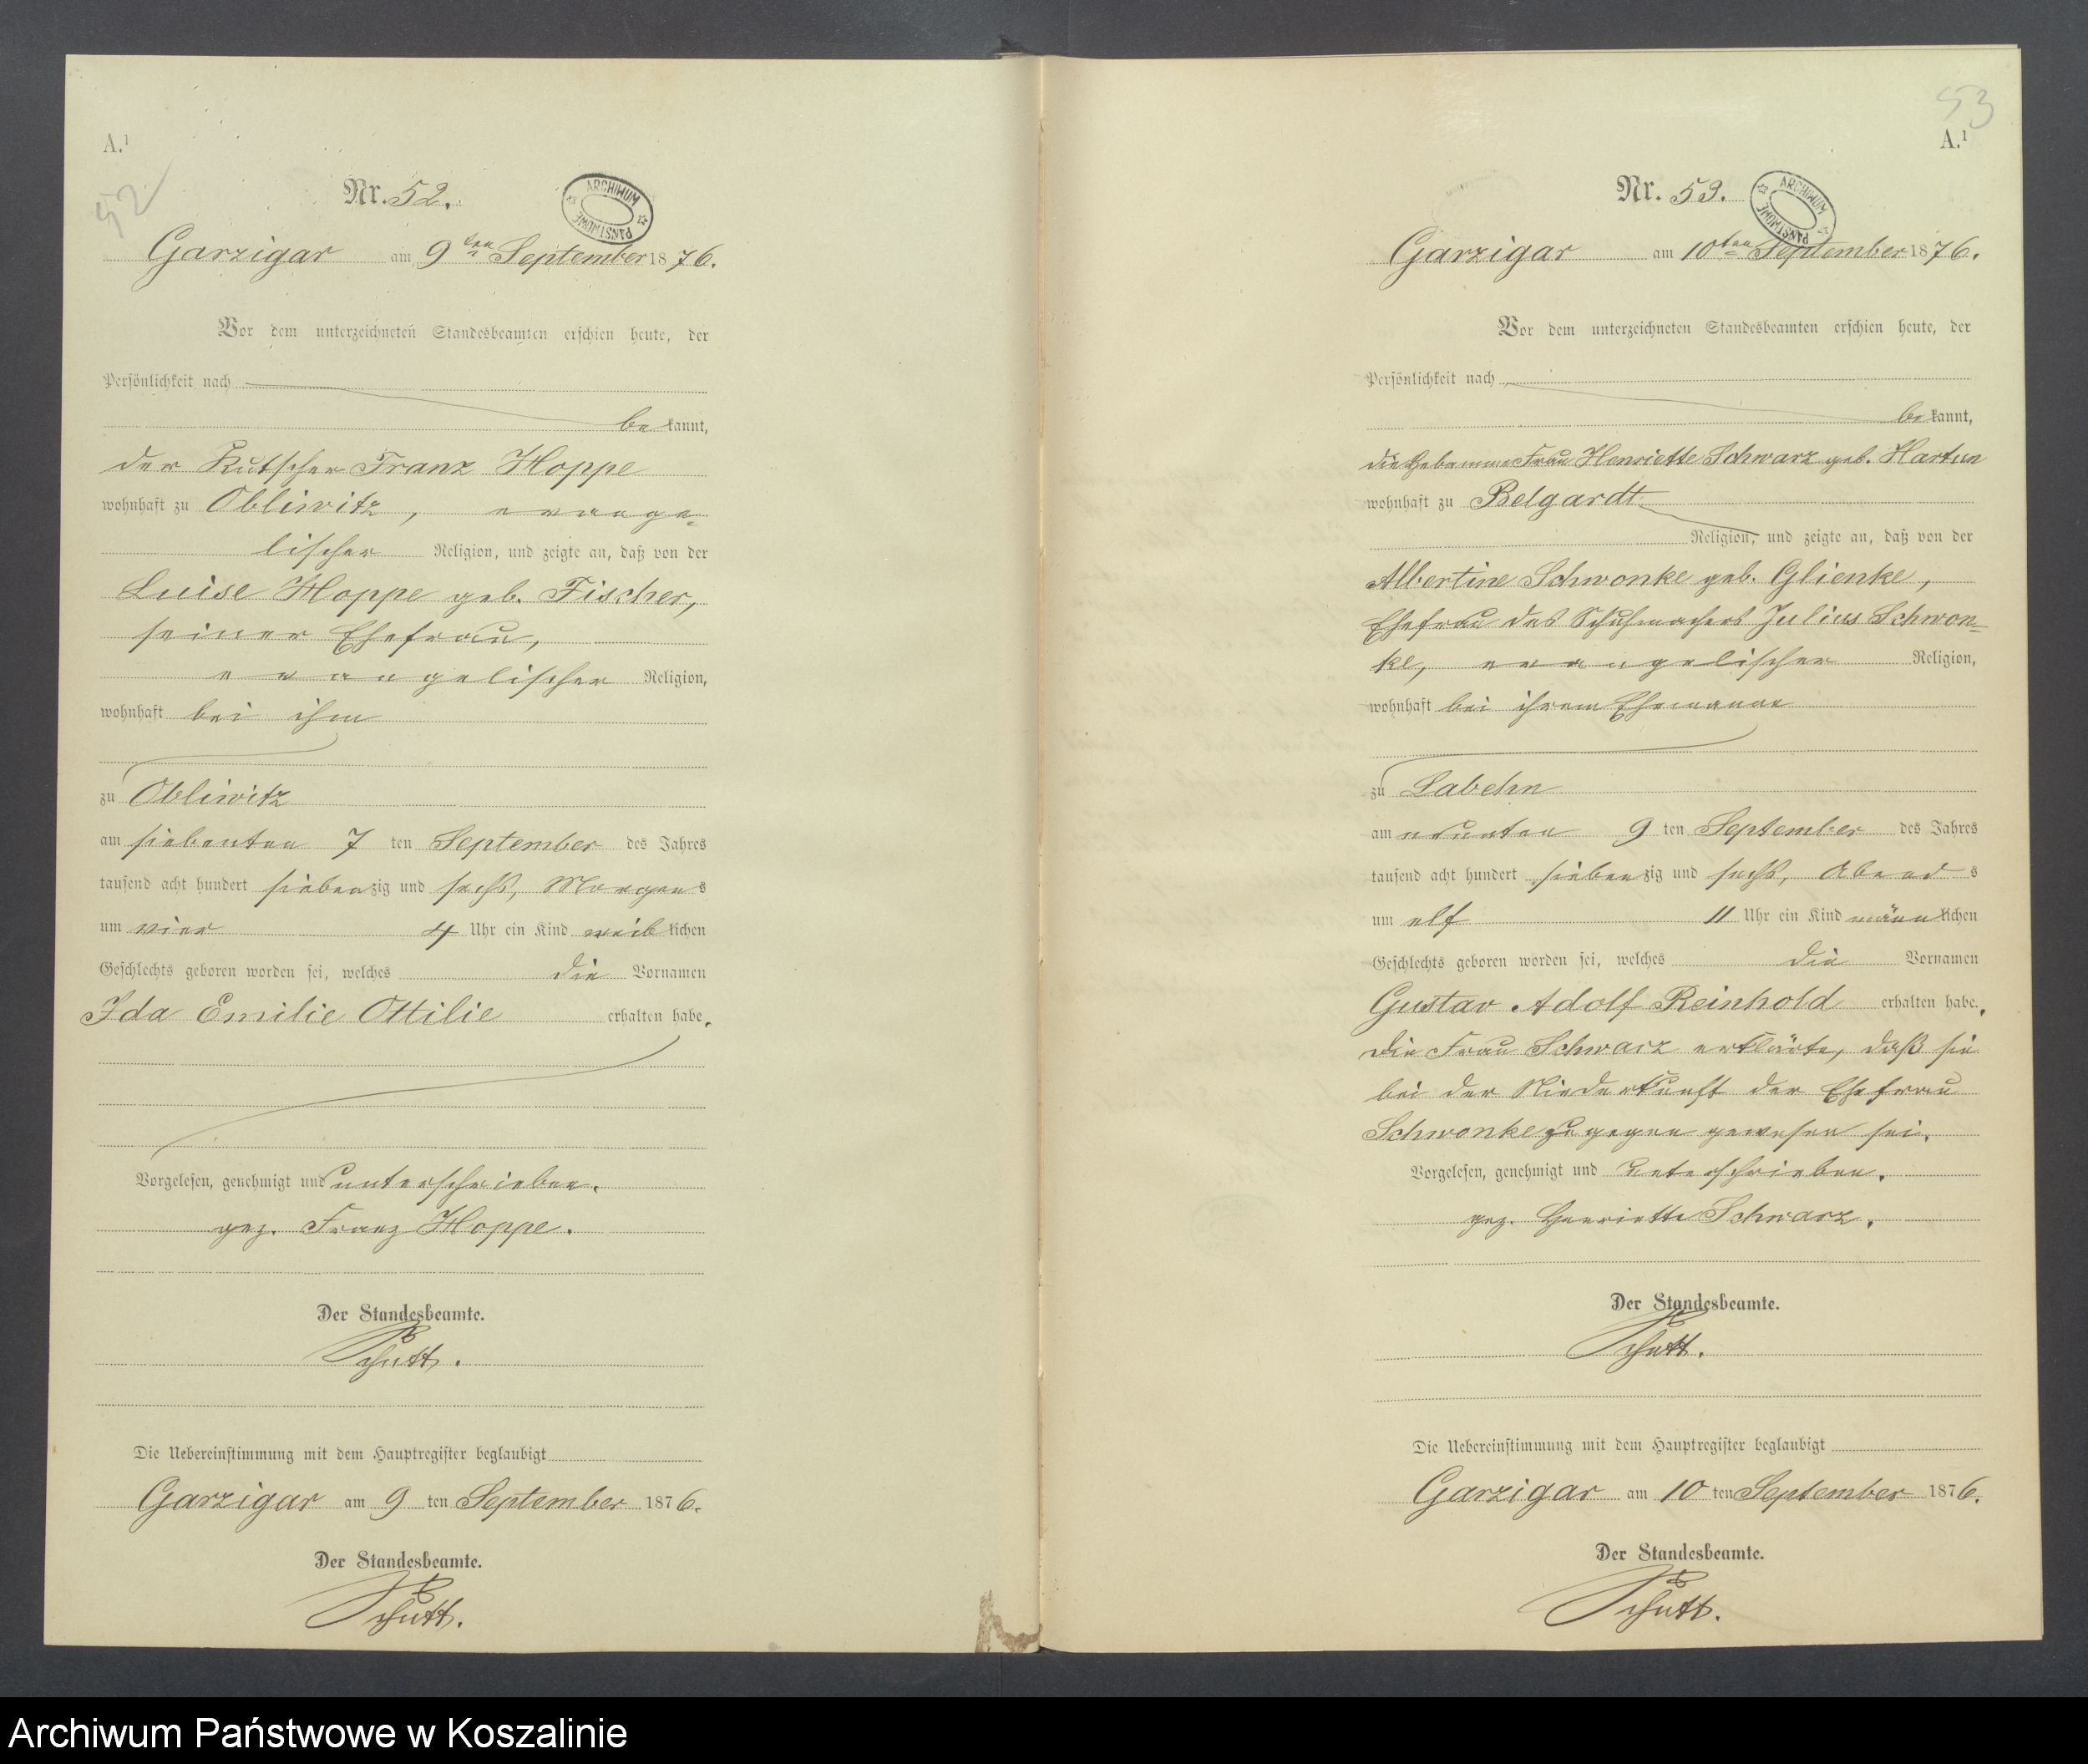 A.¹
52
Nr. 52.
ARCHIWUM PAŃSTWOWE
Garzigar am 9ten September 1876.
Vor dem unterzeichneten Standesbeamten erschien heute, der
Persönlichkeit nach
bekannt,
der Kutscher Franz Hoppe
wohnhaft zu Obliwitz, evange-
lischer Religion, und zeigte an, daß von der
Luise Hoppe geb. Fischer,
seiner Ehefrau,
evangelischer Religion,
wohnhaft bei ihm
zu Obliwitz
am siebenten 7 ten September des Jahres
tausend acht hundert siebenzig und sechs, Morgens
um vier 4 Uhr ein Kind weiblichen
Geschlechts geboren worden sei, welches die Vornamen
Ida Emilie Ottilie erhalten habe.
Vorgelesen, genehmigt und unterschrieben.
gez. Franz Hoppe.
Der Standesbeamte.
Schutt.
Die Uebereinstimmung mit dem Hauptregister beglaubigt
Garzigar am 9 ten September 1876.
Der Standesbeamte.
Schutt.
53
A.¹
Nr. 53.
ARCHIWUM PAŃSTWOWE
Garzigar am 10ten September 1876.
Vor dem unterzeichneten Standesbeamten erschien heute, der
Persönlichkeit nach
bekannt,
die Hebamme Frau Henriette Schwarz geb. Hartun
wohnhaft zu Belgardt
Religion, und zeigte an, daß von der
Albertine Schwonke geb. Glienke,
Ehefrau des Schuhmachers Julius Schwon-
ke, evangelischer Religion,
wohnhaft bei ihrem Ehemanne
zu Labehn
am neunten 9 ten September des Jahres
tausend acht hundert siebenzig und sechs, Abends
um elf 11 Uhr ein Kind männlichen
Geschlechts geboren worden sei, welches die Vornamen
Gustav Adolf Reinhold erhalten habe.
Die Frau Schwarz erklärte, daß sie
bei der Niederkunft der Ehefrau
Schwonke zugegen gewesen sei.
Vorgelesen, genehmigt und unterschrieben.
gez. Henriette Schwarz.
Der Standesbeamte.
Schutt.
Die Uebereinstimmung mit dem Hauptregister beglaubigt
Garzigar am 10 ten September 1876.
Der Standesbeamte.
Schutt.
Archiwum Państwowe w Koszalinie